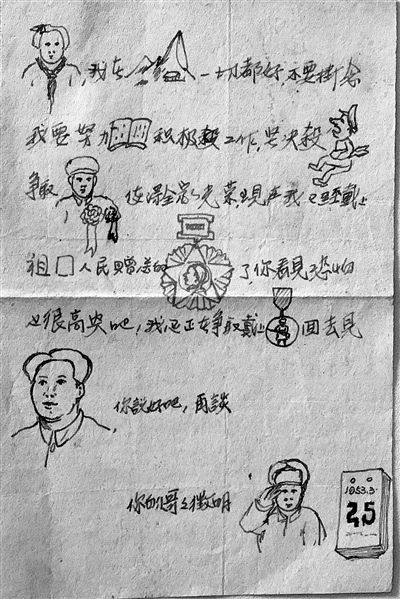 ，我在一切都好，不要掛念
我要努力积极工作，坚决殺
争取，使得全家光荣，現在我已經戴上
祖人民贈送的了，你看見恐怕
也很高兴吧，我还正在争取戴上回去見
你說好吧，再談
你的哥徵明
1953.3.
25